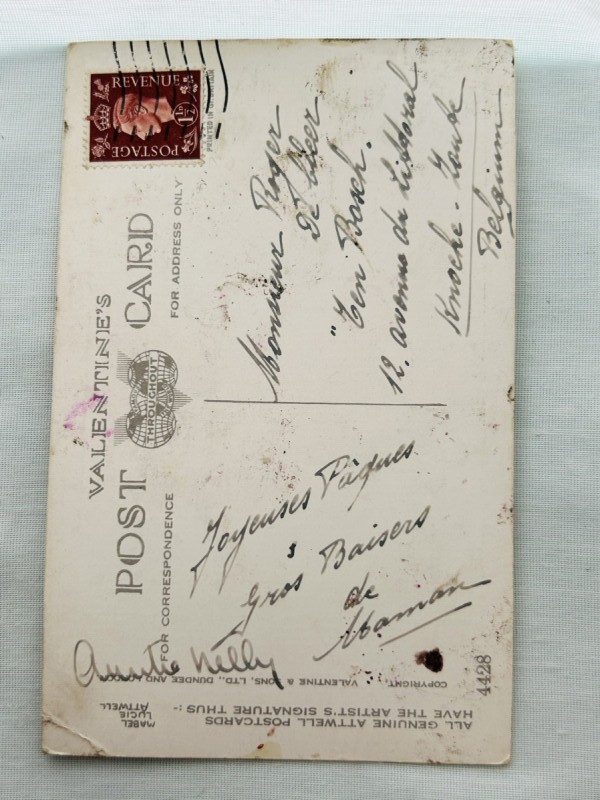 VALENTINE'S
POST CARD
THROUGHOUT
FOR CORRESPONDENCE
FOR ADDRESS ONLY
REVENUE
1½D
POSTAGE
PRINTED IN
Joyeuses Pâques
&
Gros Baisers
de
Maman
Auntie Nelly
Monsieur Roger
De Cleer
"Ten Bosch.
12, avenue du Littoral
Knocke - Zoute
Belgium
COPYRIGHT. VALENTINE & SONS, LTD., DUNDEE AND
ALL GENUINE ATTWELL POSTCARDS
HAVE THE ARTIST'S SIGNATURE THUS :-
MABEL
LUCIE
ATTWELL
4428